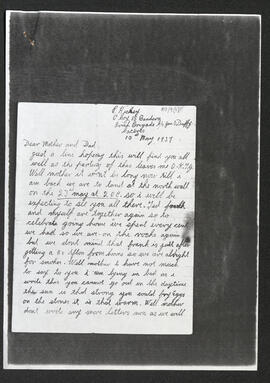 10th May 1937
Dear Mother and Dad,
Just a line hoping this will find you all
well as the parting of this leaves me O.K.
Well mother it wont be long now till I
am back we are to land at the north wall
on the 27 may at 2.0 so I will be
expecting to see you all there. Ted
and myself are together again so to
celebrate going home we spent every cent
we had so we are on the rocks again
but we dont mind that frank is just after
getting a from home so we are alright
for smokes. Well mother I have not much
to say to you I am lying in bed as I
write this you cannot go out in the daytime
the sun is that strong you could fry eggs
on the stones it is that warm. Well mother
dont write any more letters now as we will